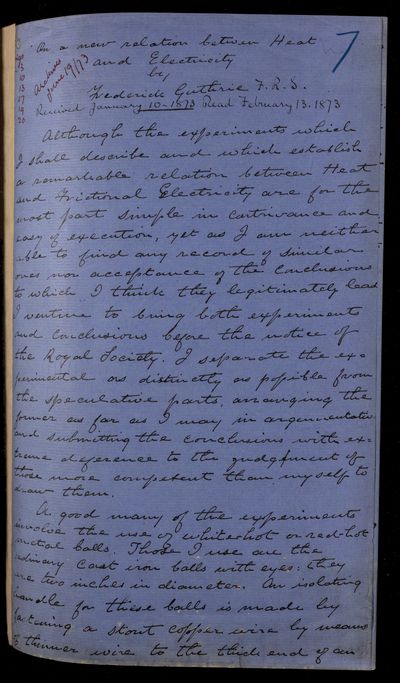 On a new relation between Heat
7
and Electricity
by
Frederick Guthrie F.R.S.
Archives
June 19/73
Received January 10-1873 Read February 13. 1873
Although the experiments which
I shall describe and which establish
a remarkable relation between Heat
and Frictional Electricity are for the
most part simple in contrivance and
easy of execution, yet as I am neither
able to find any record of similar
ones nor acceptance of the conclusions
to which I think they legitimately lead
I venture to bring both experiments
and conclusions before the notice of
the Royal Society. I separate the ex=
perimental as distinctly as possible from
the speculative parts, arranging the
former as far as I may in argumentative
and submitting the conclusions with ex=
treme deference to the judgment of
those more competent than myself to
draw them.
A good many of the experiments
involve the use of white-hot or red-hot
metal balls. Those I use are the
ordinary cast iron balls with eyes: they
are two inches in diameter. An isolating
handle for these balls is made by
fastening a stout copper wire by means
of thinner wire to the thick end of an